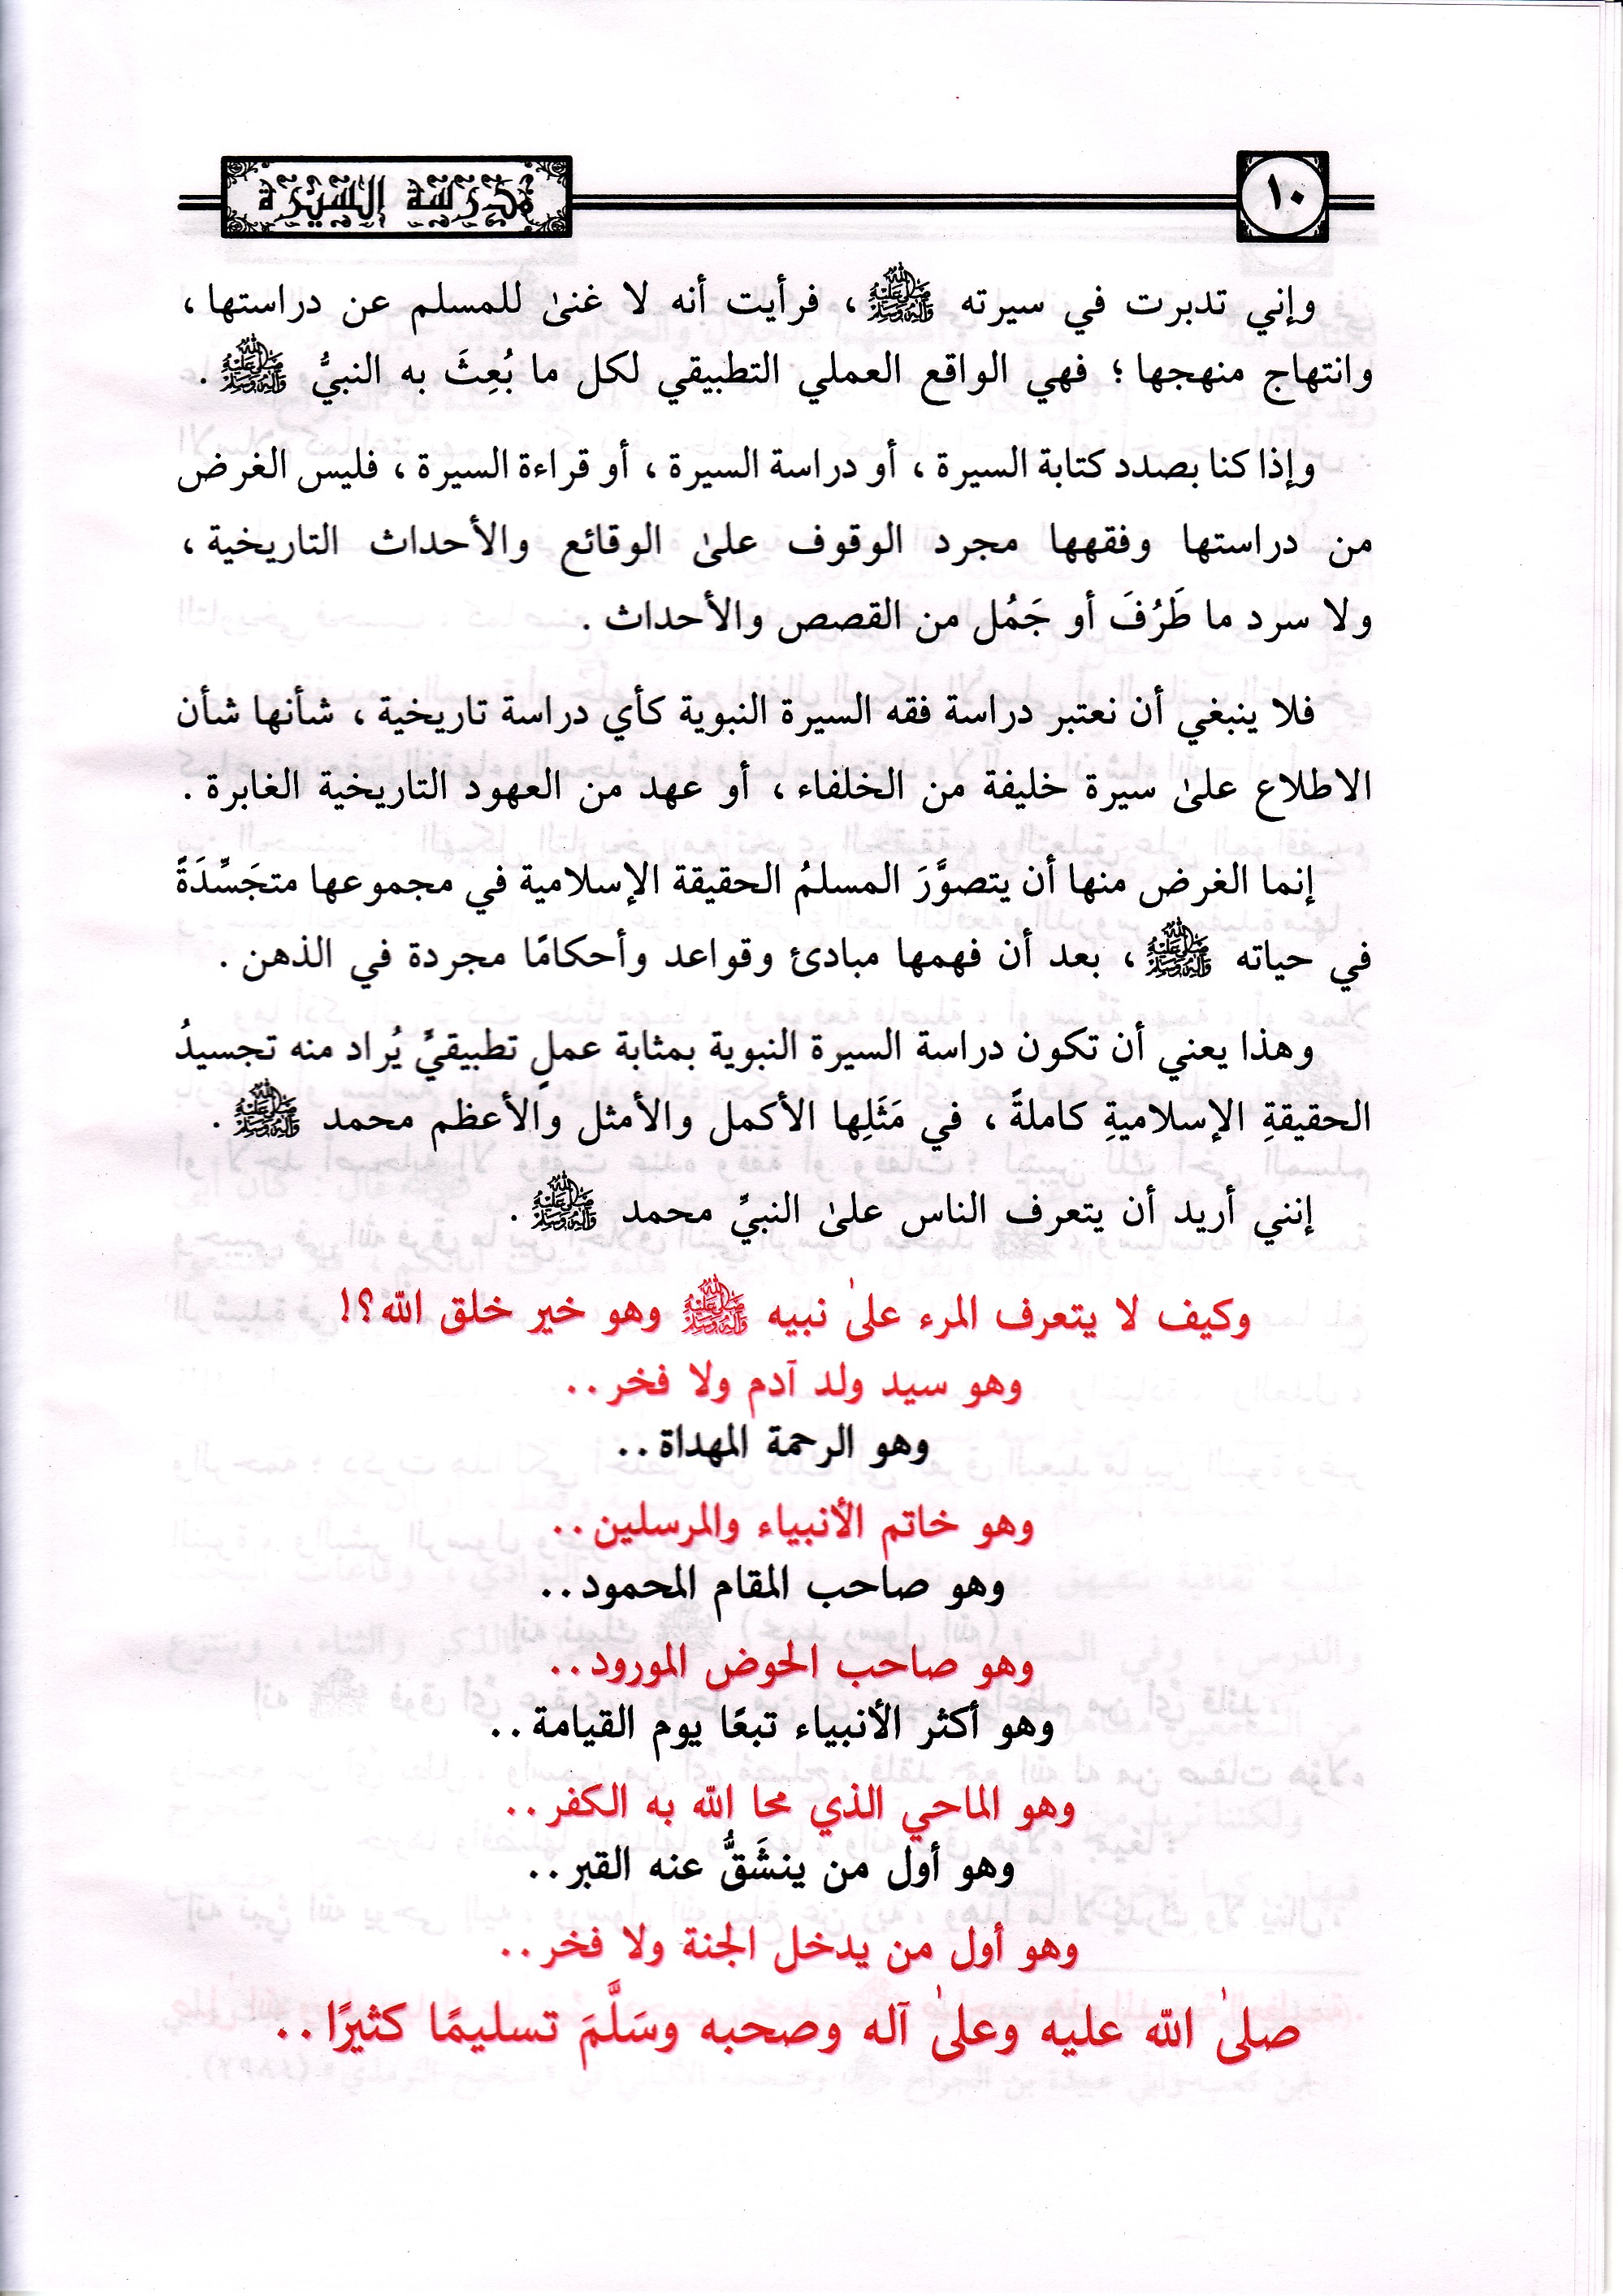 ١٠
مدرسة السيرة
وإني تدبرت في سيرته ﷺ ، فرأيت أنه لا غنىٰ للمسلم عن دراستها ،
وانتهاج منهجها ؛ فهي الواقع العملي التطبيقي لكل ما بُعِثَ به النبيُّ ﷺ .
وإذا كنا بصدد كتابة السيرة ، أو دراسة السيرة ، أو قراءة السيرة ، فليس الغرض
من دراستها وفقهها مجرد الوقوف علىٰ الوقائع والأحداث التاريخية ،
ولا سرد ما طَرُفَ أو جَمُل من القصص والأحداث .
فلا ينبغي أن نعتبر دراسة فقه السيرة النبوية كأي دراسة تاريخية ، شأنها شأن
الاطلاع علىٰ سيرة خليفة من الخلفاء ، أو عهد من العهود التاريخية الغابرة .
إنما الغرض منها أن يتصوَّرَ المسلمُ الحقيقة الإسلامية في مجموعها متجَسِّدَةً
في حياته ﷺ ، بعد أن فهمها مبادئ وقواعد وأحكامًا مجردة في الذهن .
وهذا يعني أن تكون دراسة السيرة النبوية بمثابة عملٍ تطبيقيٍّ يُراد منه تجسيدُ
الحقيقةِ الإسلاميةِ كاملةً ، في مَثَلِها الأكمل والأمثل والأعظم محمد ﷺ .
إنني أريد أن يتعرف الناس علىٰ النبيِّ محمد ﷺ .
وكيف لا يتعرف المرء علىٰ نبيه ﷺ وهو خير خلق الله؟!
وهو سيد ولد آدم ولا فخر..
وهو الرحمة المهداة..
وهو خاتم الأنبياء والمرسلين..
وهو صاحب المقام المحمود..
وهو صاحب الحوض المورود..
وهو أكثر الأنبياء تبعًا يوم القيامة..
وهو الماحي الذي محا الله به الكفر..
وهو أول من ينشَقُّ عنه القبر..
وهو أول من يدخل الجنة ولا فخر..
صلىٰ الله عليه وعلىٰ آله وصحبه وسَلَّمَ تسليمًا كثيرًا..